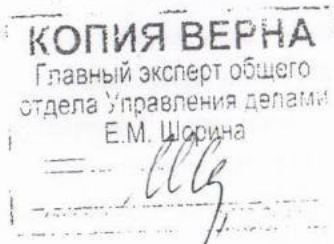 КОПИЯ ВЕРНА
Главный эксперт общего
отдела Управления делами
Е.М. Шорина